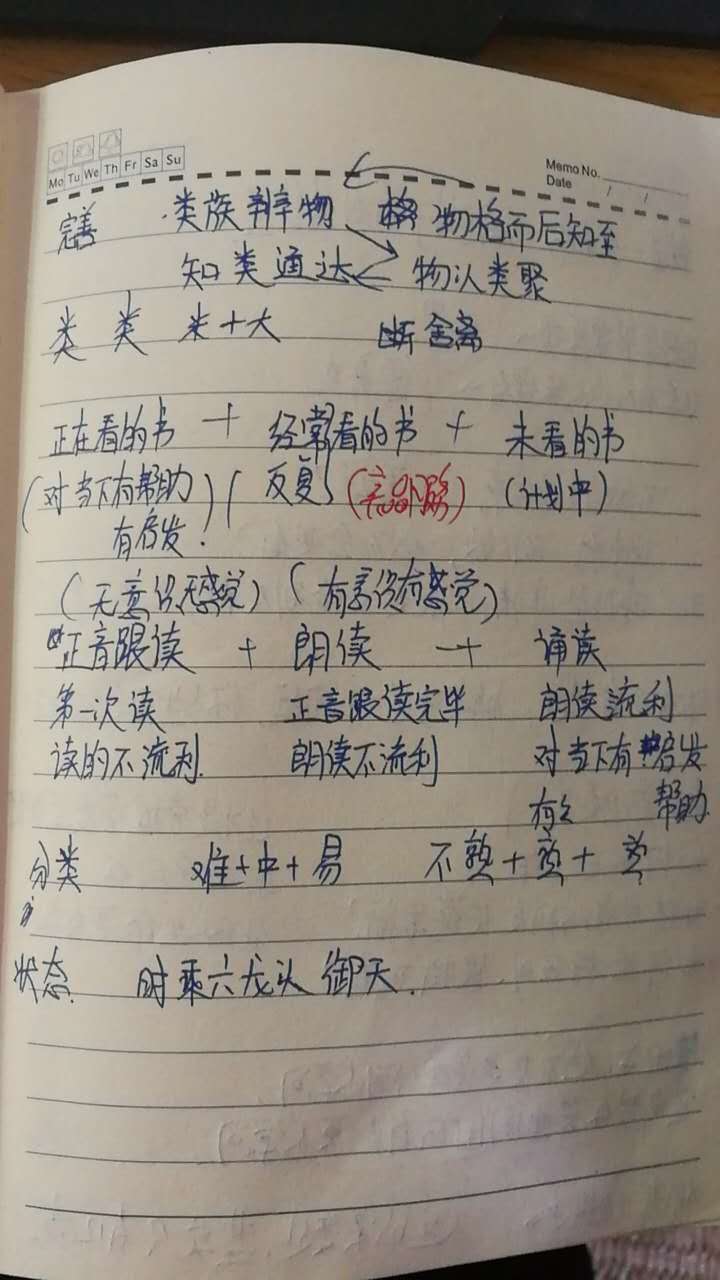 Mo Tu We Th Fr Sa Su
Memo No.
Date / /
完善 类族辨物 物格而后知至
知类通达 物以类聚
类 类 米+大 断舍离
正在看的书 + 经常看的书 + 未看的书
(对当下有帮助 (反复) (计划中)
有启发.
(无意识无感觉) (有意识有感觉)
正音跟读 + 朗读 + 诵读
第一次读 正音跟读完毕 朗读流利
读的不流利. 朗读不流利 对当下有启发
帮助.
分类 难+中+易 不熟+
状态. 时乘六龙以御天.